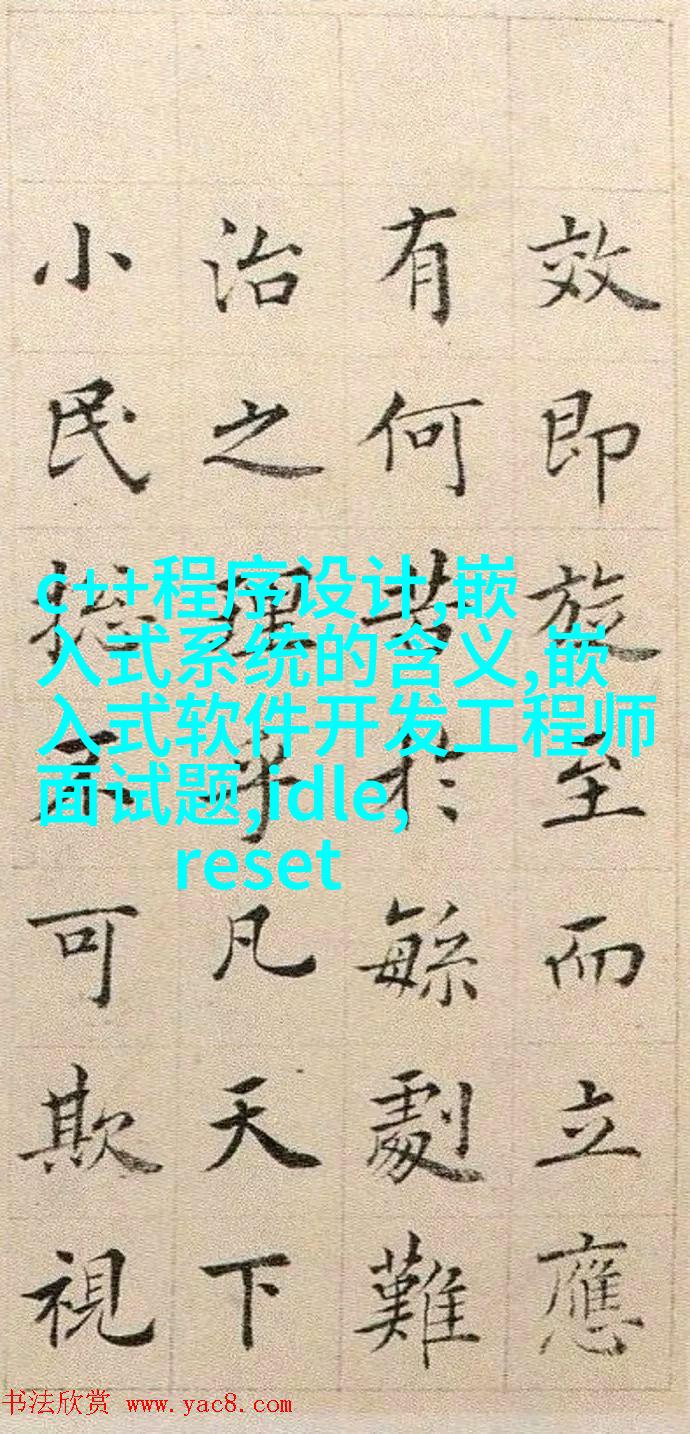 效即旋至而立應
有何苦於緐劇難
治之理乎凡天下
小民不可欺視
c++程序设计,嵌
入式系统的含义,嵌
入式软件开发工程师
面试题,idle,
reset
书法欣赏 www.yac8.com